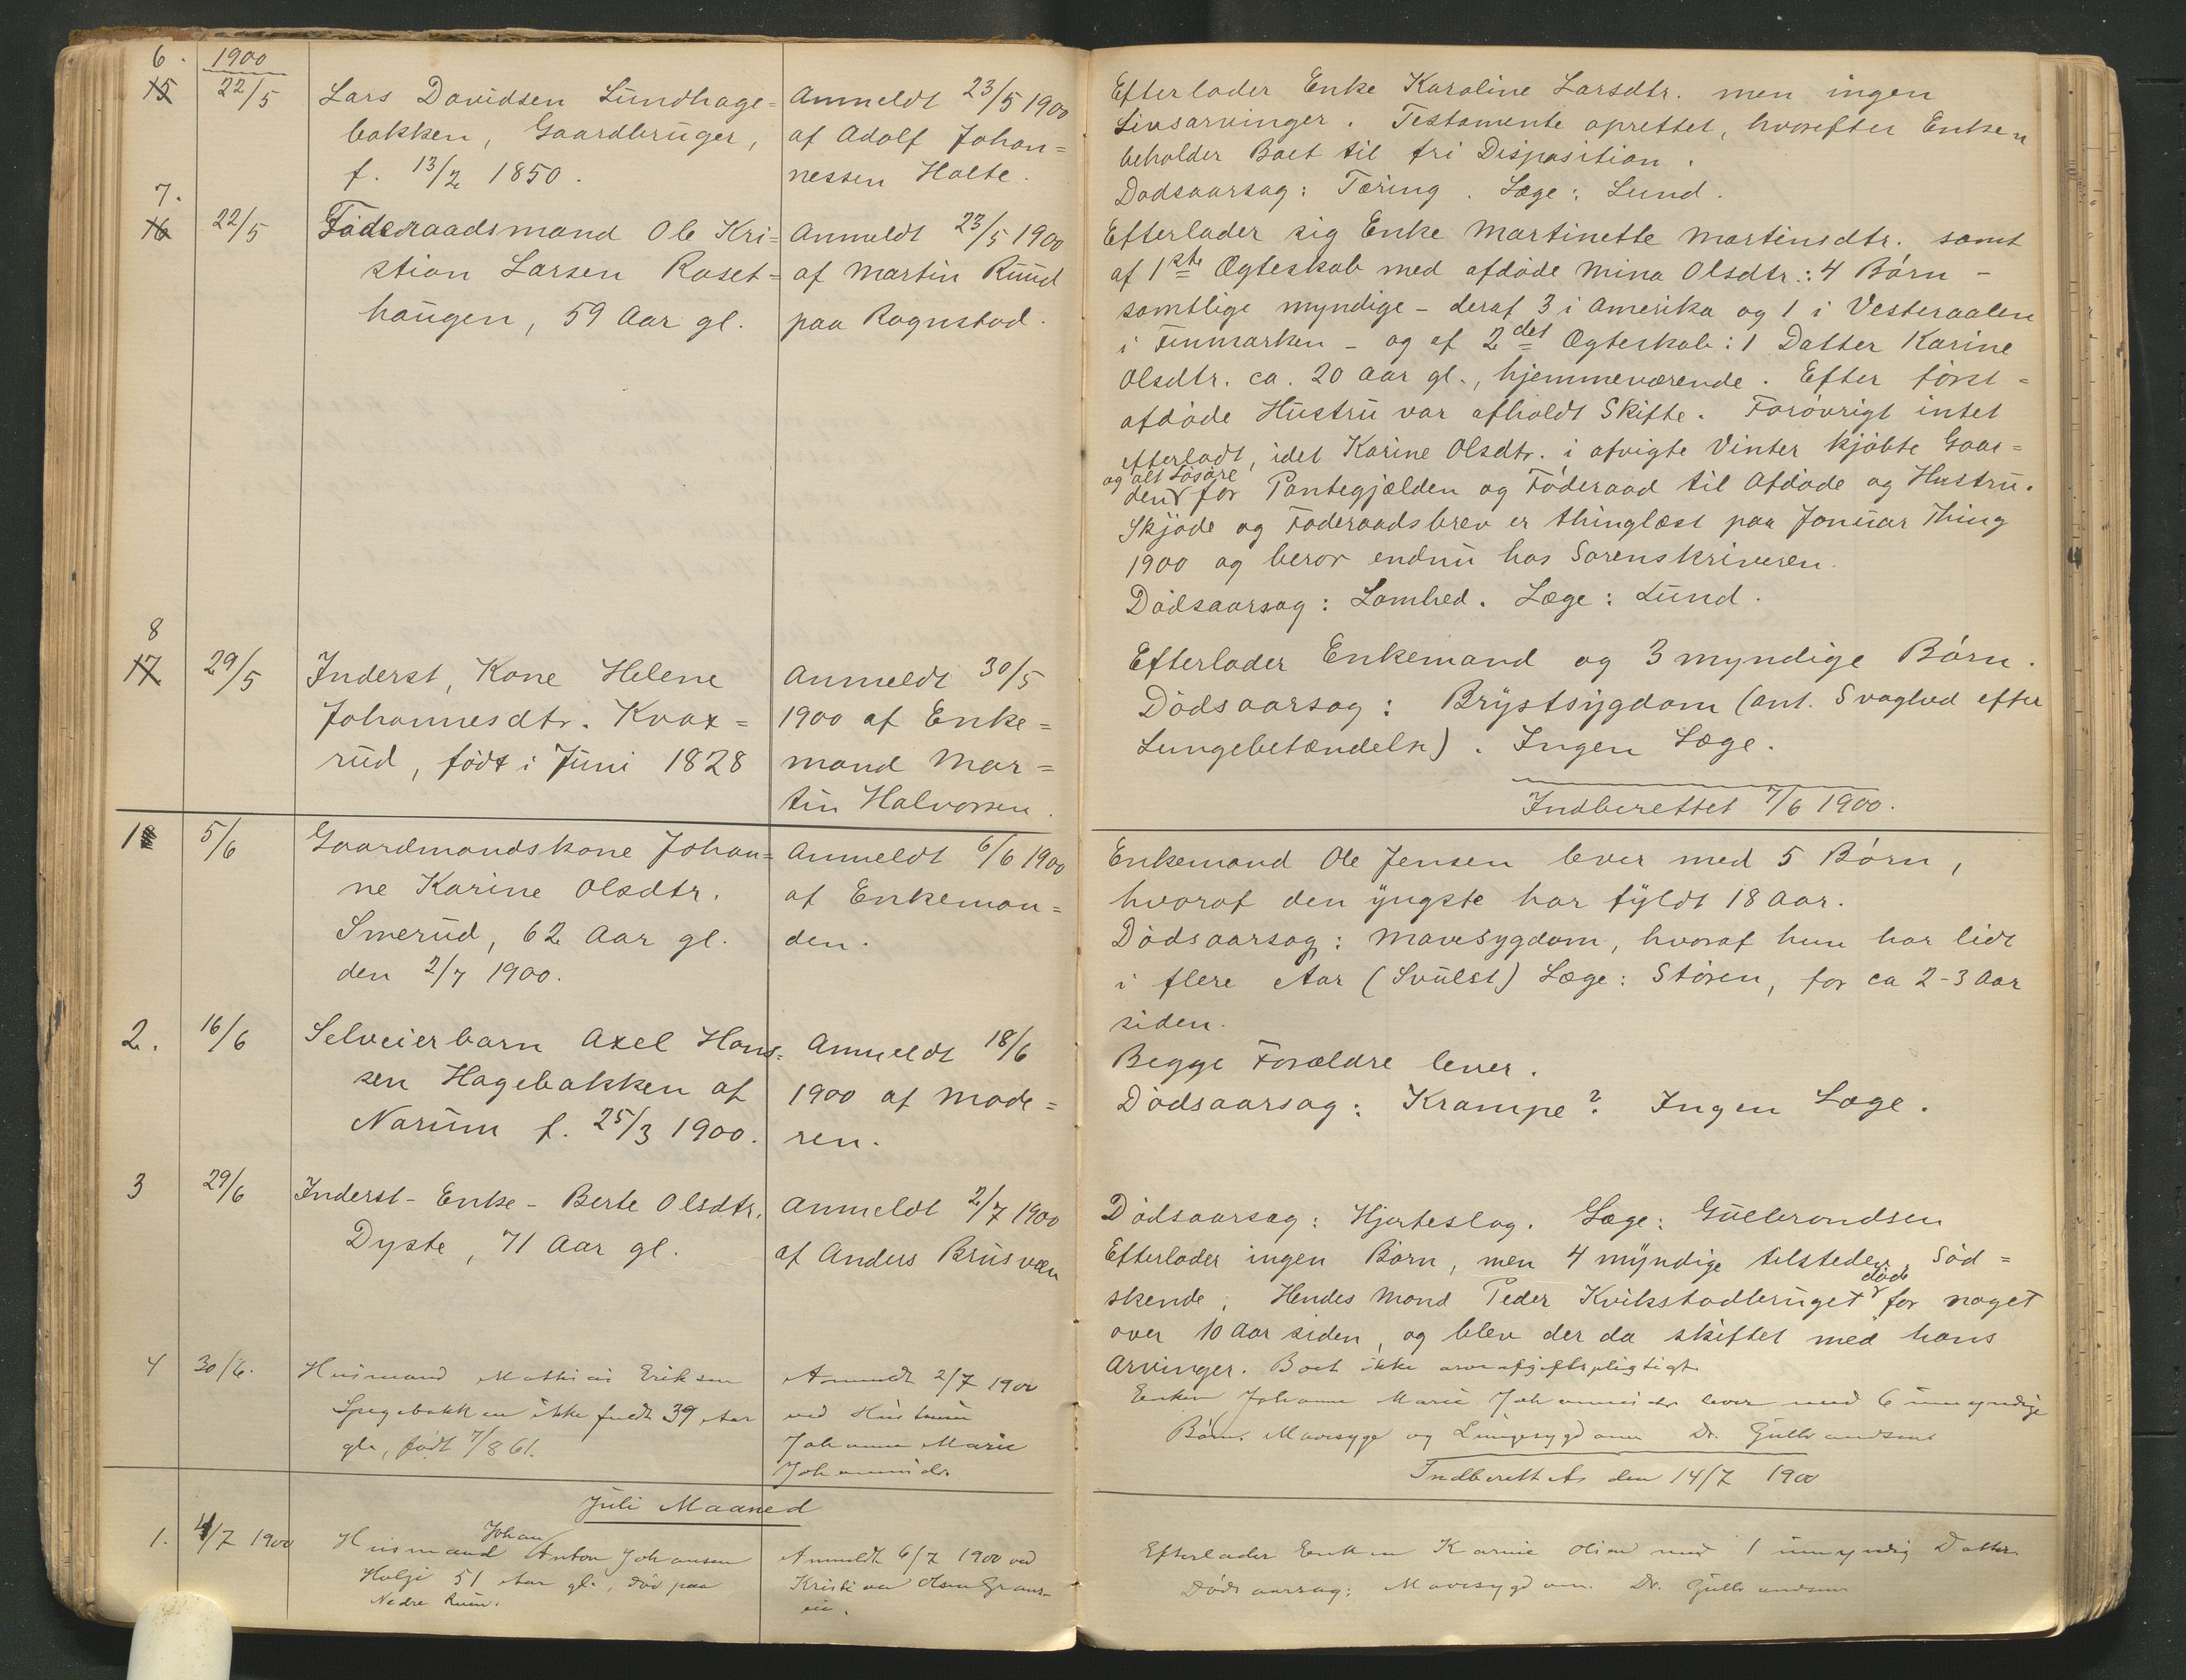 6. 1900
15 22/5 Lars Davidsen Lundhage=
bakken, Gaardbruger,
f. 13/2 1850.
Anmeldt 23/5 1900
af Adolf Johan=
nessen Holte.
Efterlader Enke Karoline Larsdtr. men ingen
Livsarvinger. Testamente oprettet, hvorefter Enken
beholder Boet til fri Disposition.
Dødsaarsag: Tæring. Læge: Lund.
7.
16 22/5 Føderaadsmand Ole Kri=
stian Larsen Roset=
haugen, 59 Aar gl.
Anmeldt 23/5 1900
af Martin Ruud
paa Rognstad.
Efterlader sig Enke Martinette Martinsdtr. samt
af 1ste Ægteskab med afdøde Mina Olsdtr.: 4 Børn -
samtlige myndige - deraf 3 i Amerika og 1 i Vesteraalen
i Finmarken - og af 2det Ægteskab: 1 Datter Karine
Olsdtr. ca. 20 Aar gl., hjemmeværende. Efter først=
afdøde Hustru var afholdt Skifte. Forøvrigt intet
efterladt, idet Karine Olsdtr. i afvigte Vinter kjøbte Gaar=
og alt Løsøre
den for Pantegjælden og Føderaad til Afdøde og Hustru.
Skjøde og Føderaadsbrev er thinglæst paa Januar Thing
1900 og beror endnu hos Sorenskriveren.
Dødsaarsag: Lamhed. Læge: Lund.
8
17 29/5 Inderst, Kone Helene
Johannesdtr. Kvax=
rud, født i Juni 1828
Anmeldt 30/5
1900 af Enke=
mand Mar=
tin Halvorsen.
Efterlader Enkemand og 3 myndige Børn.
Dødsaarsag: Brystsygdom (ant. Svaghed efter
Lungebetændelse). Ingen Læge.
Indberettet 7/6 1900.
1 5/6 Gaardmandskone Johan=
ne Karine Olsdtr.
Smerud, 62 Aar gl.
den 2/7 1900.
Anmeldt 6/6 1900
af Enkeman=
den.
Enkemand Ole Jensen lever med 5 Børn,
hvoraf den yngste har fyldt 18 Aar.
Dødsaarsag: Mavesygdom, hvoraf hun har lidt
i flere Aar (Svulst) Læge: Støren, for ca 2-3 Aar
siden.
2. 16/6 Selveierbarn Axel Hans=
sen Hagebakken af
Narum f. 25/3 1900.
Anmeldt 18/6
1900 af Mode=
ren.
Begge Forældre lever.
Dødsaarsag: Krampe? Ingen Læge.
3 29/6 Inderst-Enke-Berte Olsdtr.
Dyste, 71 Aar gl.
Anmeldt 2/7 1900
af Anders Brusveen
Dødsaarsag: Hjerteslag. Læge: Gulbrandsen
Efterlader ingen Børn, men 4 myndige tilstedev. Sød=
død
skende. Hendes Mand Peder Kvikstadbruget for noget
over 10 Aar siden, og blev der da skiftet med hans
Arvinger. Boet ikke arveafgiftspligtigt.
4 30/6. Husmand Mathias Eriksen
Spegebakken ikke fuldt 39 Aar
gl., født 7/8 61.
Anmeldt 2/7 1900
ved Hustruen
Johanne Marie
Johannesdr.
Enken Johanne Marie Johannesdr lever med 6 umyndige
Børn. Mavesyge og Lungesygdom Dr. Gulbrandsen
Indberettet den 14/7 1900
Juli Maaned
1. 4/7 1900 Husmand Johan Anton Johansen
51 Aar gl., død paa
Nedre Ruen.
Anmeldt 6/7 1900 ved
Kristian Olsen
eie.
Efterlader Enken Karine Olsen med 1 umyndig Datter
Dødsaarsag: Mavesygdom. Dr. Gulbrandsen